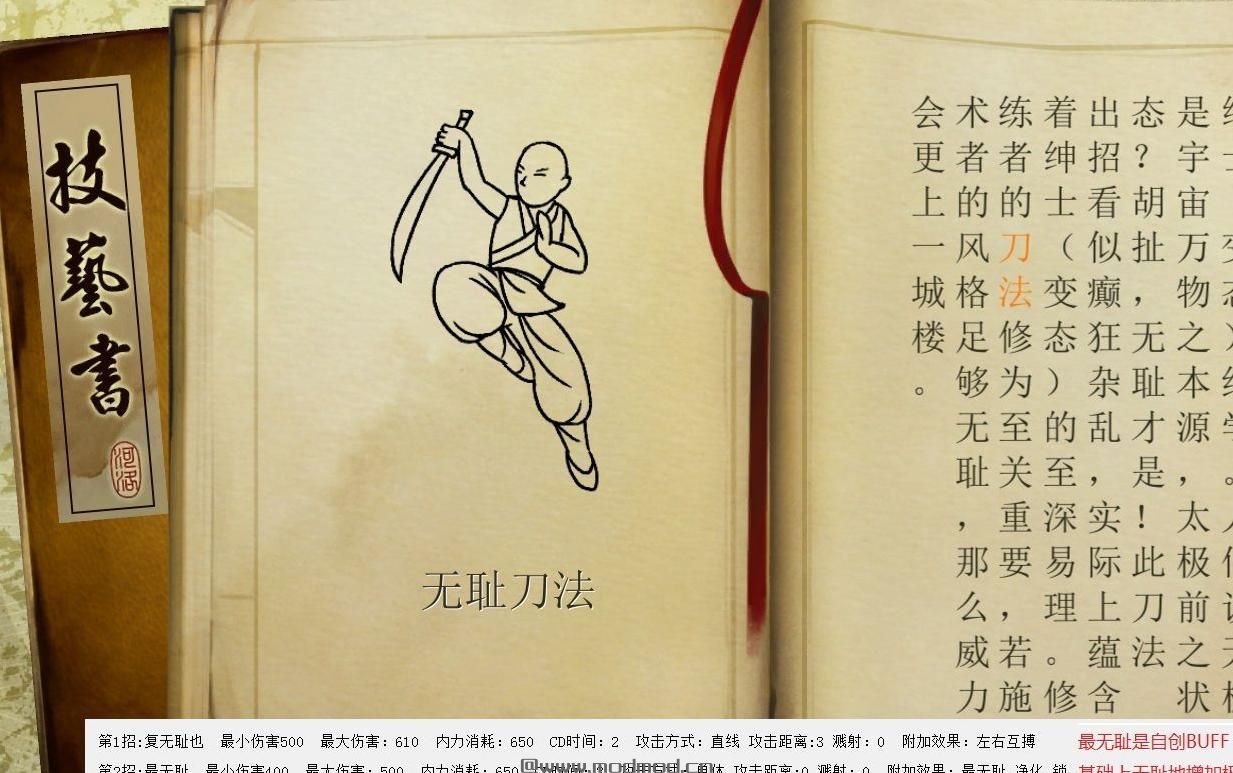 技藝書
河洛
无耻刀法
是宇宙万物之本源，太极前之状
态？胡扯，无耻才是！此刀法
出招看似癫狂杂乱，实际上蕴含
着绅士（变态）的至深易理。修
练者的刀法修为至关重要，若施
术者的风格足够无耻，那么威力
会更上一城楼。
第1招:复无耻也 最小伤害500 最大伤害：610 内力消耗：650 CD时间：2 攻击方式：直线 攻击距离:3 溅射：0 附加效果：左右互搏
最无耻是自创BUFF
第2招:最无耻 最小伤害400 最大伤害：500 内力消耗：650 攻击距离:0 溅射：0 附加效果：最无耻
基础上无耻地增加